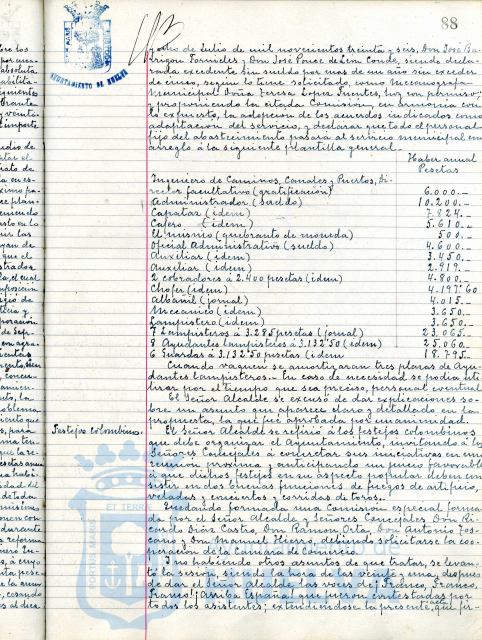 88
AYUNTAMIENTO DE HUELVA
y ocho de Julio de mil novecientos treinta y seis, Don José Ba-
rrigon Fornieles y Don José Ponce de Leon Conde, siendo decla-
rada excedente sin sueldo por mas de un año sin exceder
de cinco, segun lo tiene solicitado, como Mecanografa
Municipal Doña Teresa Lopez Fuentes, hoy con permiso;
y proponiendo la citada Comisión, en armonia con
lo expuesto, la adopcion de los acuerdos indicados como
adaptacion del servicio, y declarar que todo el personal
fijo del abastecimiento pasará al servicio municipal con
arreglo á la siguiente plantilla general.
Haber anual
Pesetas
Ingeniero de Caminos, Canales y Puertos, Di-
rector facultativo (gratificación) 6.000.-
Administrador (sueldo) 10.200.-
Capataz (idem) 7.824.-
Cajero (idem) 5.610.-
El mismo (quebranto de moneda) 500.-
Oficial Administrativo (sueldo) 4.600.-
Auxiliar (idem) 3.450.-
Auxiliar (idem) 2.919.-
2 cobradores á 2.400 pesetas (idem) 4.800.-
Chofer (idem) 4.197'60
Albañil (jornal) 4.015.-
Mecanico (idem) 3.650.-
Lampistero (idem) 3.650.-
7 Lampisteros á 3.285 pesetas (jornal) 23.065.-
8 Ayudantes lampisteros á 3.132'50 (idem) 25.060.-
6 Guardas á 3.132'50 pesetas (idem 18.795.-
Cuando vaquen se amortizaran tres plazas de Ayu-
dantes lampisteros.- En caso de necesidad se podra uti-
lizar por el tiempo que sea preciso, personal eventual
El Señor Alcalde se excusó de dar explicaciones so-
bre un asunto que aparece claro y detallado en la
propuesta, la qué fué aprobada por unanimidad.
Festejos colombinos. El Señor Alcalde se refirió á los festejos colombinos
que debe organizar el Ayuntamiento, invitando á los
Señores Concejales á concretar sus iniciativas en una
reunion proxima y anticipando un juicio favorable
á que dichos festejos en su aspecto popular deben con-
sistir en dos buenas funciones de fuegos de artificio,
veladas y conciertos y corridas de toros.
Quedando formada una Comision especial forma-
da por el Señor Alcalde y Señores Concejales Don Ri-
cardo Diaz Castro, Don Ramon Orta, Don Antonio Tos-
cano y Don Manuel Hierro, debiendo solicitarse la coo-
peracion de la Camara de Comercio.
Y no habiendo otros asuntos de que tratar, se levan-
tó la sesion, siendo la hora de las veinte y una, despues
de dar el Señor Alcalde las voces de ¡Franco, Franco,
Franco! ¡Arriba España! que fueron contestadas por
todos los asistentes; extendiendose la presente, que fir-